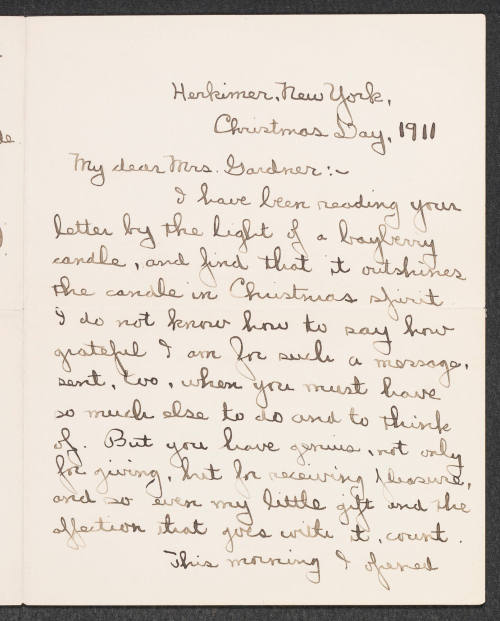 Herkimer, New York,
Christmas Day, 1911
My dear Mrs. Gardner:~
I have been reading your
letter by the light of a bayberry
candle, and find that it outshines
the candle in Christmas spirit.
I do not know how to say how
grateful I am for such a message,
sent, too, when you must have
so much else to do and to think
of. But you have genius, not only
for giving, but for receiving pleasure,
and so even my little gift and the
affection that goes with it, count.
This morning I opened